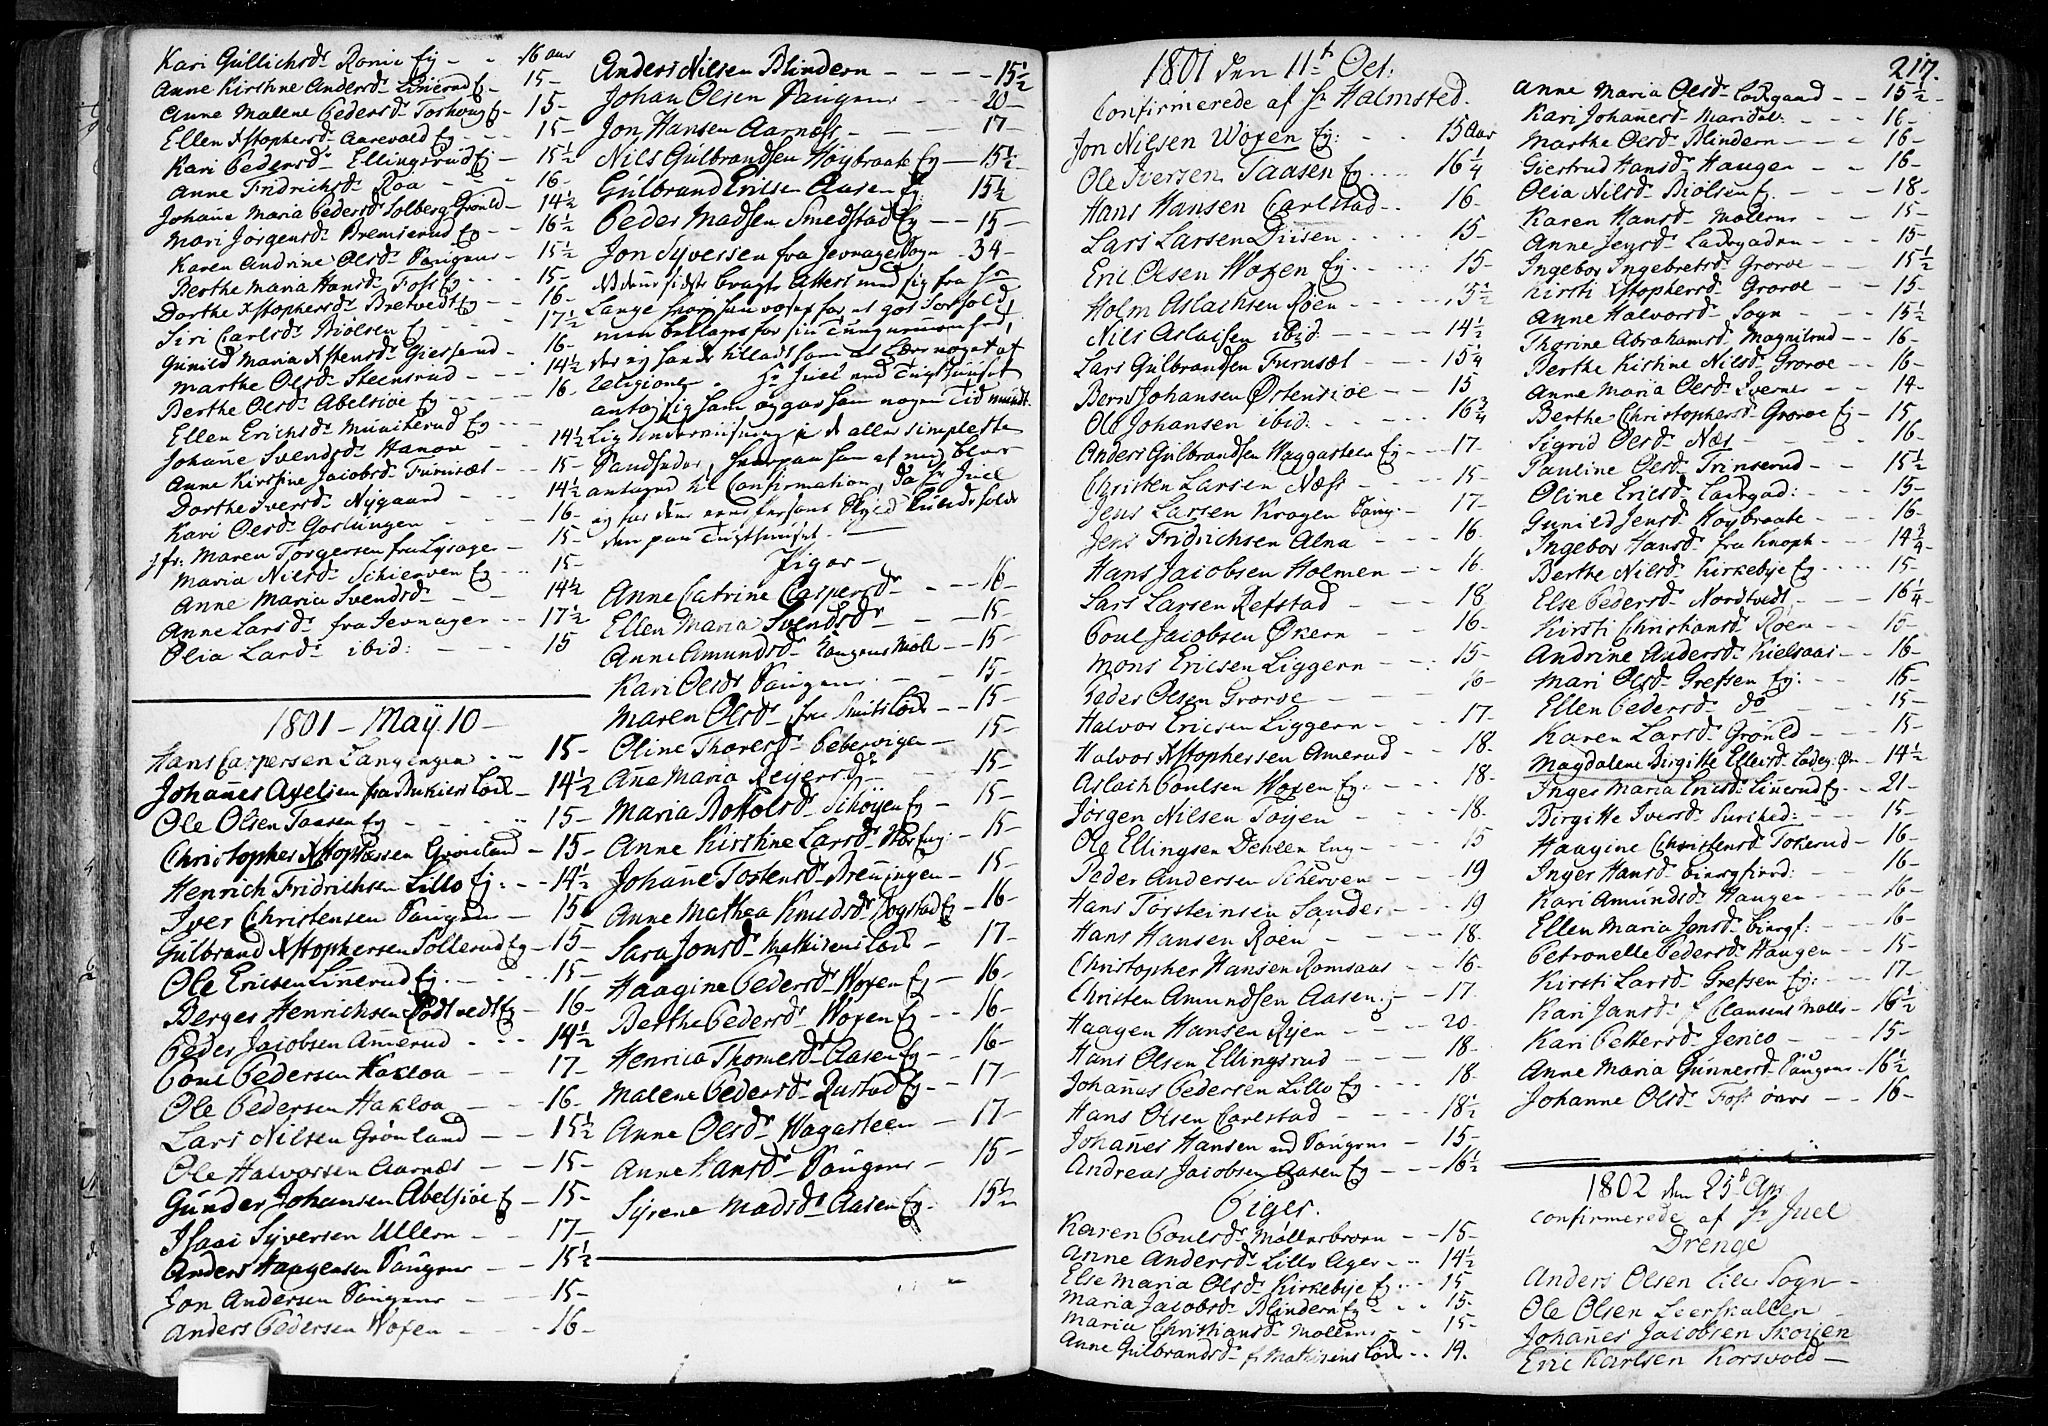 Kari Gullichsdr Romie Ey - - 16 aar
Anne Kirstine Andersdr Linerud E - 15 -
Anne Malene Pedersdr Torshoug E - 15 -
Ellen Xstophersdr Aarevold Ey - 15 -
Kari Pedersdr Ellingsrud Ej - 15½
Anne Fridrichsdr Roa - - 16 -
Johañe Maria Pedersdr Solberg Grønld - 14½
Mari Jørgensdr Bremserud Ey - 16½
Karen Andrine Olsdr Saugene - 15½
Berthe Maria Hansdr Foss Ey - 15 -
Dorthe Xstophersdr Bretvedt Ey - 16 -
Siri Carlsdr Biølsen Ey - - 17½
Gunild Maria Xstensdr Giesserud - 16 -
Marthe Olsdr Steensrud - - 14½
Berthe Olsdr Abelsiøe Ey - - 16
Ellen Erichsdr Ey - - -
Johañe Svendsdr Hanou - - 14½
Anne Kirstine Jacobsdr Furuset - 15 -
Dorthe Iversdr Nygaard - - 14½
Kari Olsdr Goslungen - - 16 -
Jfr: Maren Torgersen fra Lysager - 15 -
Maria Nilsdr Schierven Ey - - 15 -
Anne Maria Svendsdr - - 14½
Anne Larsdr fra Jevnager - - 17½
Olia Larsdr ibid: - - - 15
1801 - May 10 -
Hans Caspersen Langengen - - 15 -
Johañes Axelsen fra Lück - 14½
Ole Olsen Taasen Ey - - - 15 -
Christopher Xstophersen Grønland - 15 -
Henrich Fridrichsen Lillo Ey: - - 14½
Iver Christensen Saugene - 15 -
Gulbrand Xstophersen Sollerud Ey - 15 -
Ole Ericsen Linerud Ey. - - 15 -
Berger Henrichsen Ey - 16 -
Peder Jacobsen Amerud - - - 14½
Poul Pedersen Hakloa - - 17 -
Ole Pedersen Hakloa - - 16 -
Lars Nilsen Grønland - - 15½
Ole Halvorsen Aarnæs - - 15 -
Gunder Johansen Abelsiøe Ey - 15 -
Isaac Syversen Ullern - - 17 -
Anders Haagensen Saugene - - 15½
Jon Andersen Saugene - - 15 -
Anders Pedersen Woxen - - - 16 -
Anders Nilsen Blindern - - - - 15½
Johan Olsen Saugene - - - 20 -
Jon Hansen Aarnæss - - - - 17 -
Nils Gulbrandsen Høybraate Ey - 15½
Gulbrand Ericsen Aasen Ey - 15½
Peder Madsen Smedstad Ey - 15 -
Jon Syversen fra Jevnager Sogn - 34 -
NB denne sidste bragte Attest med sig fra Hr
Lange
men for sin
der
religionen. Hr Juel ved Tugthuuset
antog sig ham og gav ham nogen Tid mündt-
lig Underviisning i de aller simpleste
Sandheder, hvorpaa han af mig blev
antaget til Confirmation, da Hr Juel
den paa Tugthuuset. -
Piger -
Anne Catrine Caspersdr - - - 16 -
Ellen Maria Svendsdr - - 15 -
Anne Amundsdr Kongens Møll - 15 -
Kari Olsdr Saugene. - - 15 -
Maren Olsdr fra Smiths Lück - - 15 -
Oline Thoresdr Pebervigen - 15 -
Añe Maria Reyersdr - - - 15 -
Maria Rokolsdr Schøyen Ey - 15 -
Anne Kirstine Larsdr Eng: - 15 -
Johañe Tostensdr Breuingen - 15 -
Anne Mathea Knudsdr Jogstad Ey - 16 -
Sara Jonsdr Mathiesens Lück - 17 -
Haagine Pedersdr Woxen Ey - 16 -
Berthe Pedersdr Woxen Ey - - 16 -
Henrica Thomesdr Aasen Ey - - 16 -
Malene Pedersdr Rustad Ey. - - 17 -
Anne Olsdr Wagasteen - - 17 -
Anne Hansdr Saugene - 15 -
Syrene Madsdr Aasen Ey. - 15½
1801 den 11t Oct:
Confirmerede af Hr Halmsted.
Jon Nilsen Woxen Ey: - - 15 Aar
Ole Iversen Taasen Ey. - - 16¼
Hans Hansen Carlstad - - 16 -
Lars Larsen Diisen - - - 15 -
Eric Olsen Woxen Ey. - - - 15 -
Holm Aslachsen Røen - - - 15½
Nils Aslacsen ibid: - - - 14½
Lars Gulbrandsen Furusæt - - 15¼
Bernt Johansen Østensiøe - - 15 -
Ole Johansen ibid: - - - 16¾
Anders Gulbrandsen Waggasteen Ey - 17 -
Christen Larsen Næss - - - 15 -
Jens Larsen Kragen - 17 -
Jens Fridrichsen Alna - - - 16 -
Hans Jacobsen Holmen - - - 16 -
Lars Larsen Refstad - - - 18
Poul Jacobsen Økern - - 16 -
Mons Ericsen Liggern - - : 15 -
Peder Olsen Grorue - - - 16 -
Halvor Ericsen Liggern - - - 17 -
Halvor Xstophersen Amerud - - 18 -
Aslach Poulsen Woxen Ey: - - 18 -
Jørgen Nilsen Tøyen - - - 18 -
Ole Ellingsen Dehlen Eng - - - 15
Peder Andersen Scherven - - - 19
Hans Torsteinsen Sander - - - 19
Hans Hansen Røen - - - 18 -
Christopher Hansen Romsaas - - 16 -
Christen Amundsen Aasen: - - 17 -
Haagen Hansen Ryen - - - - 20 -
Hans Olsen Ellingsrud - - - 18 -
Johañes Pedersen Lillo Ey - - - 18 -
Hans Olsen Carlstad - - - - 18½
Johañes Hansen ved Saugene - 15 -
Andreas Jacobsen Aasen Ey - - - 16½
Piger.
Karen Poulsdr Møllerbroen - - 15 -
Anne Andersdr Lillo Ager - - 14½
Else Maria Olsdr Kirkebye Ey: - - 15
Maria Jacobsdr Blindern Ey - - - 15 -
Maria Christiansdr Mollene - - 15 -
Anne Gulbrandsdr f. Mathiesens Lück - - 14.
217.
Anne Maria Olsdr Ladegaard - - 15½ -
Kari Johañesdr Maridal: - - - 16 -
Marthe Olsdr Blindern - - - - 16 -
Giertrud Hansdr Haugen - - 16 -
Olia Nilsdr Biølsen Ey - - - 18 -
Karen Hansdr Møllerne - - 15 -
Anne Jensdr Ladegaden - - - 15 -
Ingebor Ingebretsdr Grorue - - 15½
Kirsti Xstophersdr Grorue - - 15 -
Anne Halvorsdr Sogn - - - 15½
Thorine Abrahamsdr Magnilrud - - 16 -
Berthe Kirstine Nilsdr Grorue - - 16 -
Anne Maria Olsdr Ivernes - - 14 -
Berthe Christophersdr Grorue Ey - 15
Sigrid Olsdr Næs - - - - 16 -
Pauline Olsdr Trinserud - - 15½
Oline Ericsdr Ladegad: - - - 15 -
Gunild Jensdr Høybraate - - - 16 -
Ingebor Hansdr fra Knoph - - - 14¾ -
Berthe Nilsdr Kirkebye Ey - - - - 15 -
Else Pedersdr Nordtvedt - - - 16¼ -
Kirsti Christiansdr Røen - - - 15 -
Andrine Andersdr Kielsaas - - 16 -
Mari Olsdr Grefsen Ey: - - 16 -
Ellen Pedersdr do - - - 15 -
Karen Larsdr Grønld - - - 15 -
Magdalene Birgitte Ellefsdr Ladeg: Øv - 14½
Inger Maria Ericsdr Linerud Ey - - 21 -
Birgitte Iversdr Surihed: - - - 15 -
Haagine Christensdr Tokerud - 16 -
Inger Hansdr binegfierd: - - 16 -
Kari Amundsdr Haugen - - - 16 -
Ellen Maria Jonsdr binegf: - - 16 -
Petronelle Pedersdr Haugen - - 15 -
Kirsti Larsdr Grefsen Ey: - - 17 -
Kari Jansdr f Clausens Mølle - 16½
Kari Pettersdr Jerico - - - 15 -
Anne Maria Gunnersdr Saugene - 16½
Johanne Olsdr Foss øvre - - 16 -
1802 den 25d Apr
confirmerede af Hr Juel
Drenge
Anders Olsen Lille Sogn -
Ole Olsen Leerskallen -
Johañes Jacobsen Skøyen
Eric Karlsen Korsvold -